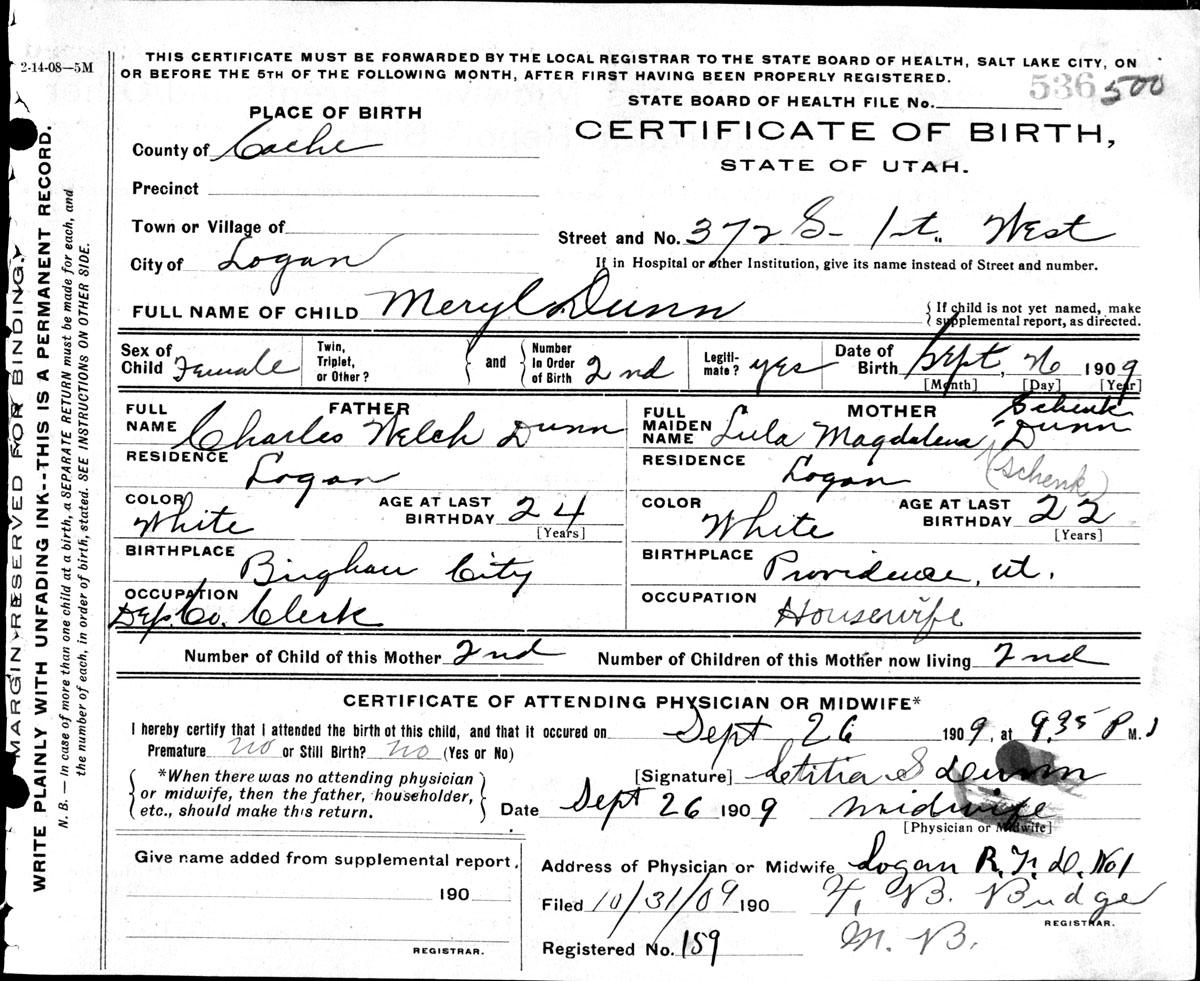 2-14-08—5M
THIS CERTIFICATE MUST BE FORWARDED BY THE LOCAL REGISTRAR TO THE STATE BOARD OF HEALTH, SALT LAKE CITY, ON
OR BEFORE THE 5TH OF THE FOLLOWING MONTH, AFTER FIRST HAVING BEEN PROPERLY REGISTERED.
STATE BOARD OF HEALTH FILE No. 536 500
PLACE OF BIRTH
CERTIFICATE OF BIRTH,
STATE OF UTAH.
County of Cache
Precinct
Town or Village of
Street and No. 372 S- 1st. West
City of Logan
If in Hospital or other Institution, give its name instead of Street and number.
FULL NAME OF CHILD Meryl Dunn
{If child is not yet named, make
supplemental report, as directed.
Sex of Child Female
Twin, Triplet, or Other?
and
Number In Order of Birth 2nd
Legitimate? yes
Date of Birth Sept, 26 1909
[Month] [Day] [Year]
FATHER
FULL NAME Charles Welch Dunn
RESIDENCE Logan
COLOR White
AGE AT LAST BIRTHDAY 24
[Years]
BIRTHPLACE Brigham City
OCCUPATION Dep. Co. Clerk
MOTHER
FULL MAIDEN NAME Lula Magdalena Schenk Dunn
(Schenk)
RESIDENCE Logan
COLOR White
AGE AT LAST BIRTHDAY 22
[Years]
BIRTHPLACE Providence, Ut.
OCCUPATION Housewife
Number of Child of this Mother 2nd Number of Children of this Mother now living 2nd
CERTIFICATE OF ATTENDING PHYSICIAN OR MIDWIFE*
I hereby certify that I attended the birth of this child, and that it occured on Sept 26 1909, at 9.35 P M.
Premature no or Still Birth? no (Yes or No)
*When there was no attending physician
or midwife, then the father, householder,
etc., should make this return.
[Signature] Letitia S Dunn
Date Sept 26 1909 Midwife
[Physician or Midwife]
Give name added from supplemental report,
190
REGISTRAR.
Address of Physician or Midwife Logan R.F.D. No 1
Filed 10/31/09 190 F. B. Budge
REGISTRAR.
Registered No. 159 M. B.
MARGIN RESERVED FOR BINDING.
WRITE PLAINLY WITH UNFADING INK--THIS IS A PERMANENT RECORD.
N. B. — In case of more than one child at a birth, a SEPARATE RETURN must be made for each, and
the number of each, in order of birth, stated. SEE INSTRUCTIONS ON OTHER SIDE.